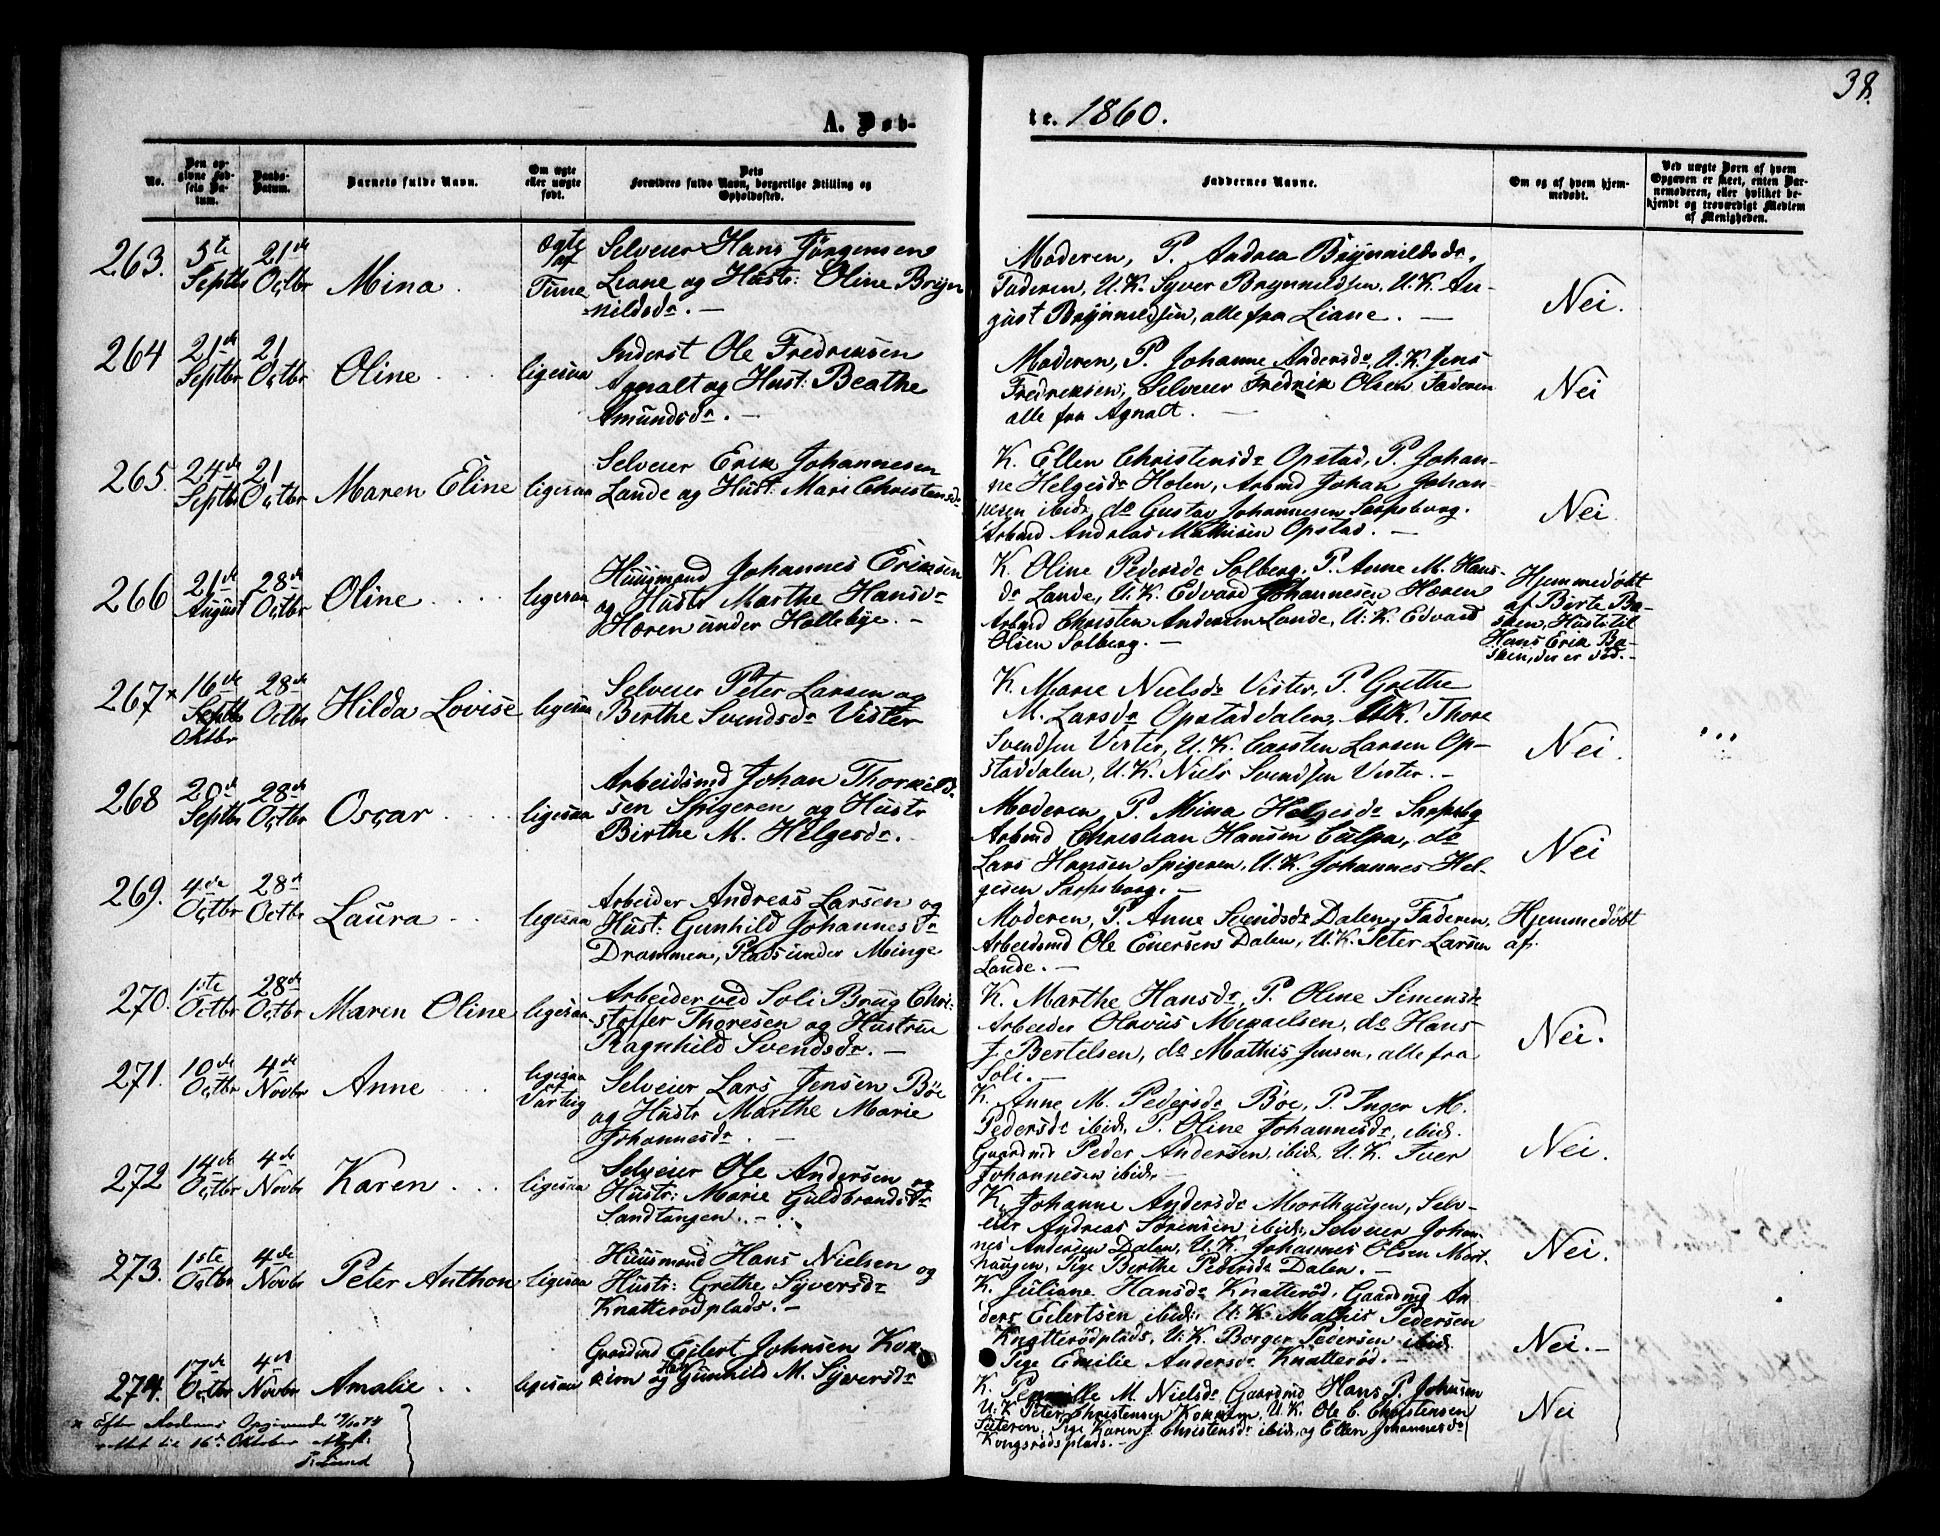 38.
A. Døb-
te. 1860.
No.
Den op-
givne Fød-
sels Da-
tum.
Daabs-
Datum.
Barnets fulde Navn.
Om ægte
eller uægte
født.
Dets
Forældres fulde Navn, borgerlige Stilling og
Opholdssted.
Faddernes Navne.
Om og af hvem hjem-
medøbt.
Ved uægte Børn af hvem
Opgaven er skeet, enten Bar-
nemoderen, eller hvilket be-
kjendt og troværdigt Medlem
af Menigheden.
263. 5te Septbr 21de Octbr Mina
Ægte af Tune
Selveier Hans Jörgensen
Liane og Hustr: Oline Bryn
nildsdr. –
Moderen, P. Andrea Brynnildsdr,
Faderen, U.K. Syver Brynnildsen, U.K. Au-
gust Brynnildsen, alle fra Liane. –
Nei.
264 21de Septbr 21 Octbr Oline
ligesaa
Inderst Ole Fredriksen
Agnalt og Hust: Beathe
Amundsdr. –
Moderen, P. Johanne Andersdr, U.K. Jens
Fredriksen, Selveier Fredrik Olsen Faderen
alle fra Agnalt. –
Nei
265. 24de Septbr 21 Octbr Maren Eline
ligesaa
Selveier Erik Johannesen
Lande og Hust: Mari Christensdr
K. Ellen Christensdr Opstad, P. Johan-
ne Helgesdr Holen, Arbmd Johan Johan-
nesen ibid, do Gustav Johannesen Sarpsborg.
Arbmd Andreas Mathisen Opstad. –
Nei.
266 21de August 28de Octbr Oline
ligesaa
Huusmand Johannes Eriksen
og Hustr Marthe Hansdr
Hæren under Hollebye. –
K. Oline Pedersdr Solberg, P. Anne M. Hans-
dr Lande, U.K. Edvard Johannesen Hæren
Arbmd Christen Andersen Lande, U.K. Edvard
Olsen Solberg. –
Hjemmedøbt
af Birte Ba-
sken, Hust: til
Hans Erik Ba-
sken, der er død. –
267 x 16de Septbr Oktbr 28de Octbr Hilda Lovise
ligesaa
Selveier Peter Larsen og
Birthe Svendsdr Vister
K. Marie Nielsdr Vister, P. Grethe
M. Larsdr Opstaddalen, U.K. Thore
Svendsen Vister, U.K. Carsten Larsen Op-
staddalen, U.K. Niels Svendsen Vister. –
Nei.
268 20de Septbr 28de Octbr Oscar
ligesaa
Arbeidsmd Johan Thorkild-
sen Spigeren og Hustr
Birthe M. Helgesdr.
Moderen, P. Mina Helgesdr Sarpsbg
Arbmd Christian Hansen Culpa, do
Lars Hansen Spigeren, U.K. Johannes Hel-
gesen Sarpsborg. –
Nei
269. 4de Octbr 28de Octbr Laura
ligesaa
Arbeider Andreas Larsen og
Hust: Gunhild Johannesdr
Drommen, Plads under Minge
Moderen, P. Anne Svendsdr Dalen, Faderen,
Arbeidsmd Ole Enersen Dalen, U.K. Peter Larsen
Lande. –
Hjemmedøbt
af:
270. 1ste Octbr 28de Octbr Maren Oline
ligesaa
Arbeider ved Soli Brug Chri-
stoffer Thoresen og Hustrue
Ragnhild Svendsdr. –
K. Marthe Hansdr, P. Oline Simensdr
Arbeider Olavus Mikaelsen, do Hans
J. Bertelsen, do Mathis Jensen, alle fra
Soli. –
Nei.
271. 10de Octbr 4de Novbr Anne
ligesaa af Varteig
Selveier Lars Jensen Böe
og Hustr Marthe Marie
Johannesdr. –
K. Anne M. Pedersdr Böe, P. Inger M.
Pedersdr ibid, P. Oline Johannesdr, ibid.
Gaardmd Peder Andersen ibid, U.K. Iver
Johannesen ibid. –
Nei.
272 14de Octbr 4de Novbr Karen
ligesaa
Selveier Ole Andersen og
Hustr: Marie Guldbrandsdr
Sandtangen. –
K. Johanne Andersdr Morthaugen, Selv-
eier Andreas Sörensen ibid, Selveier Johan-
nes Andersen Dalen, U.K. Johannes Olsen Mort-
haugen, Pige Birthe Pedersdr Dalen. –
Nei.
273. 1ste Octbr 4de Novbr Peter Anthon
ligesaa
Huusmand Hans Nielsen og
Hustr: Grethe Syversdr
Knatterödplads. –
K. Juliane Hansdr Knatteröd, Gaardmd An
ders Eilertsen ibid, U.K. Mathis Pedersen
Knatterödplads, U.K. Borger Pedersen ibid
Pige Emilie Andersdr Knatteröd. –
Nei. –
274. 17de Octbr 4de Novbr Amalie
ligesaa
Gaardmd Eilert Johnsen Kok
kim og Gunhild M. Syversdr
K. Pernille M. Nielsdr Gaardmd Hans P. Johnsen
U.K Peter Christensen Kokkim, U.K. Ole C. Christensen
Sæteren, Pige Karen J. Christensdr ibid, og Ellen Johannesdr
Kongsrödsplads. –
Nei
x efter Moderens Opgivende
rettet til 16de Oktober